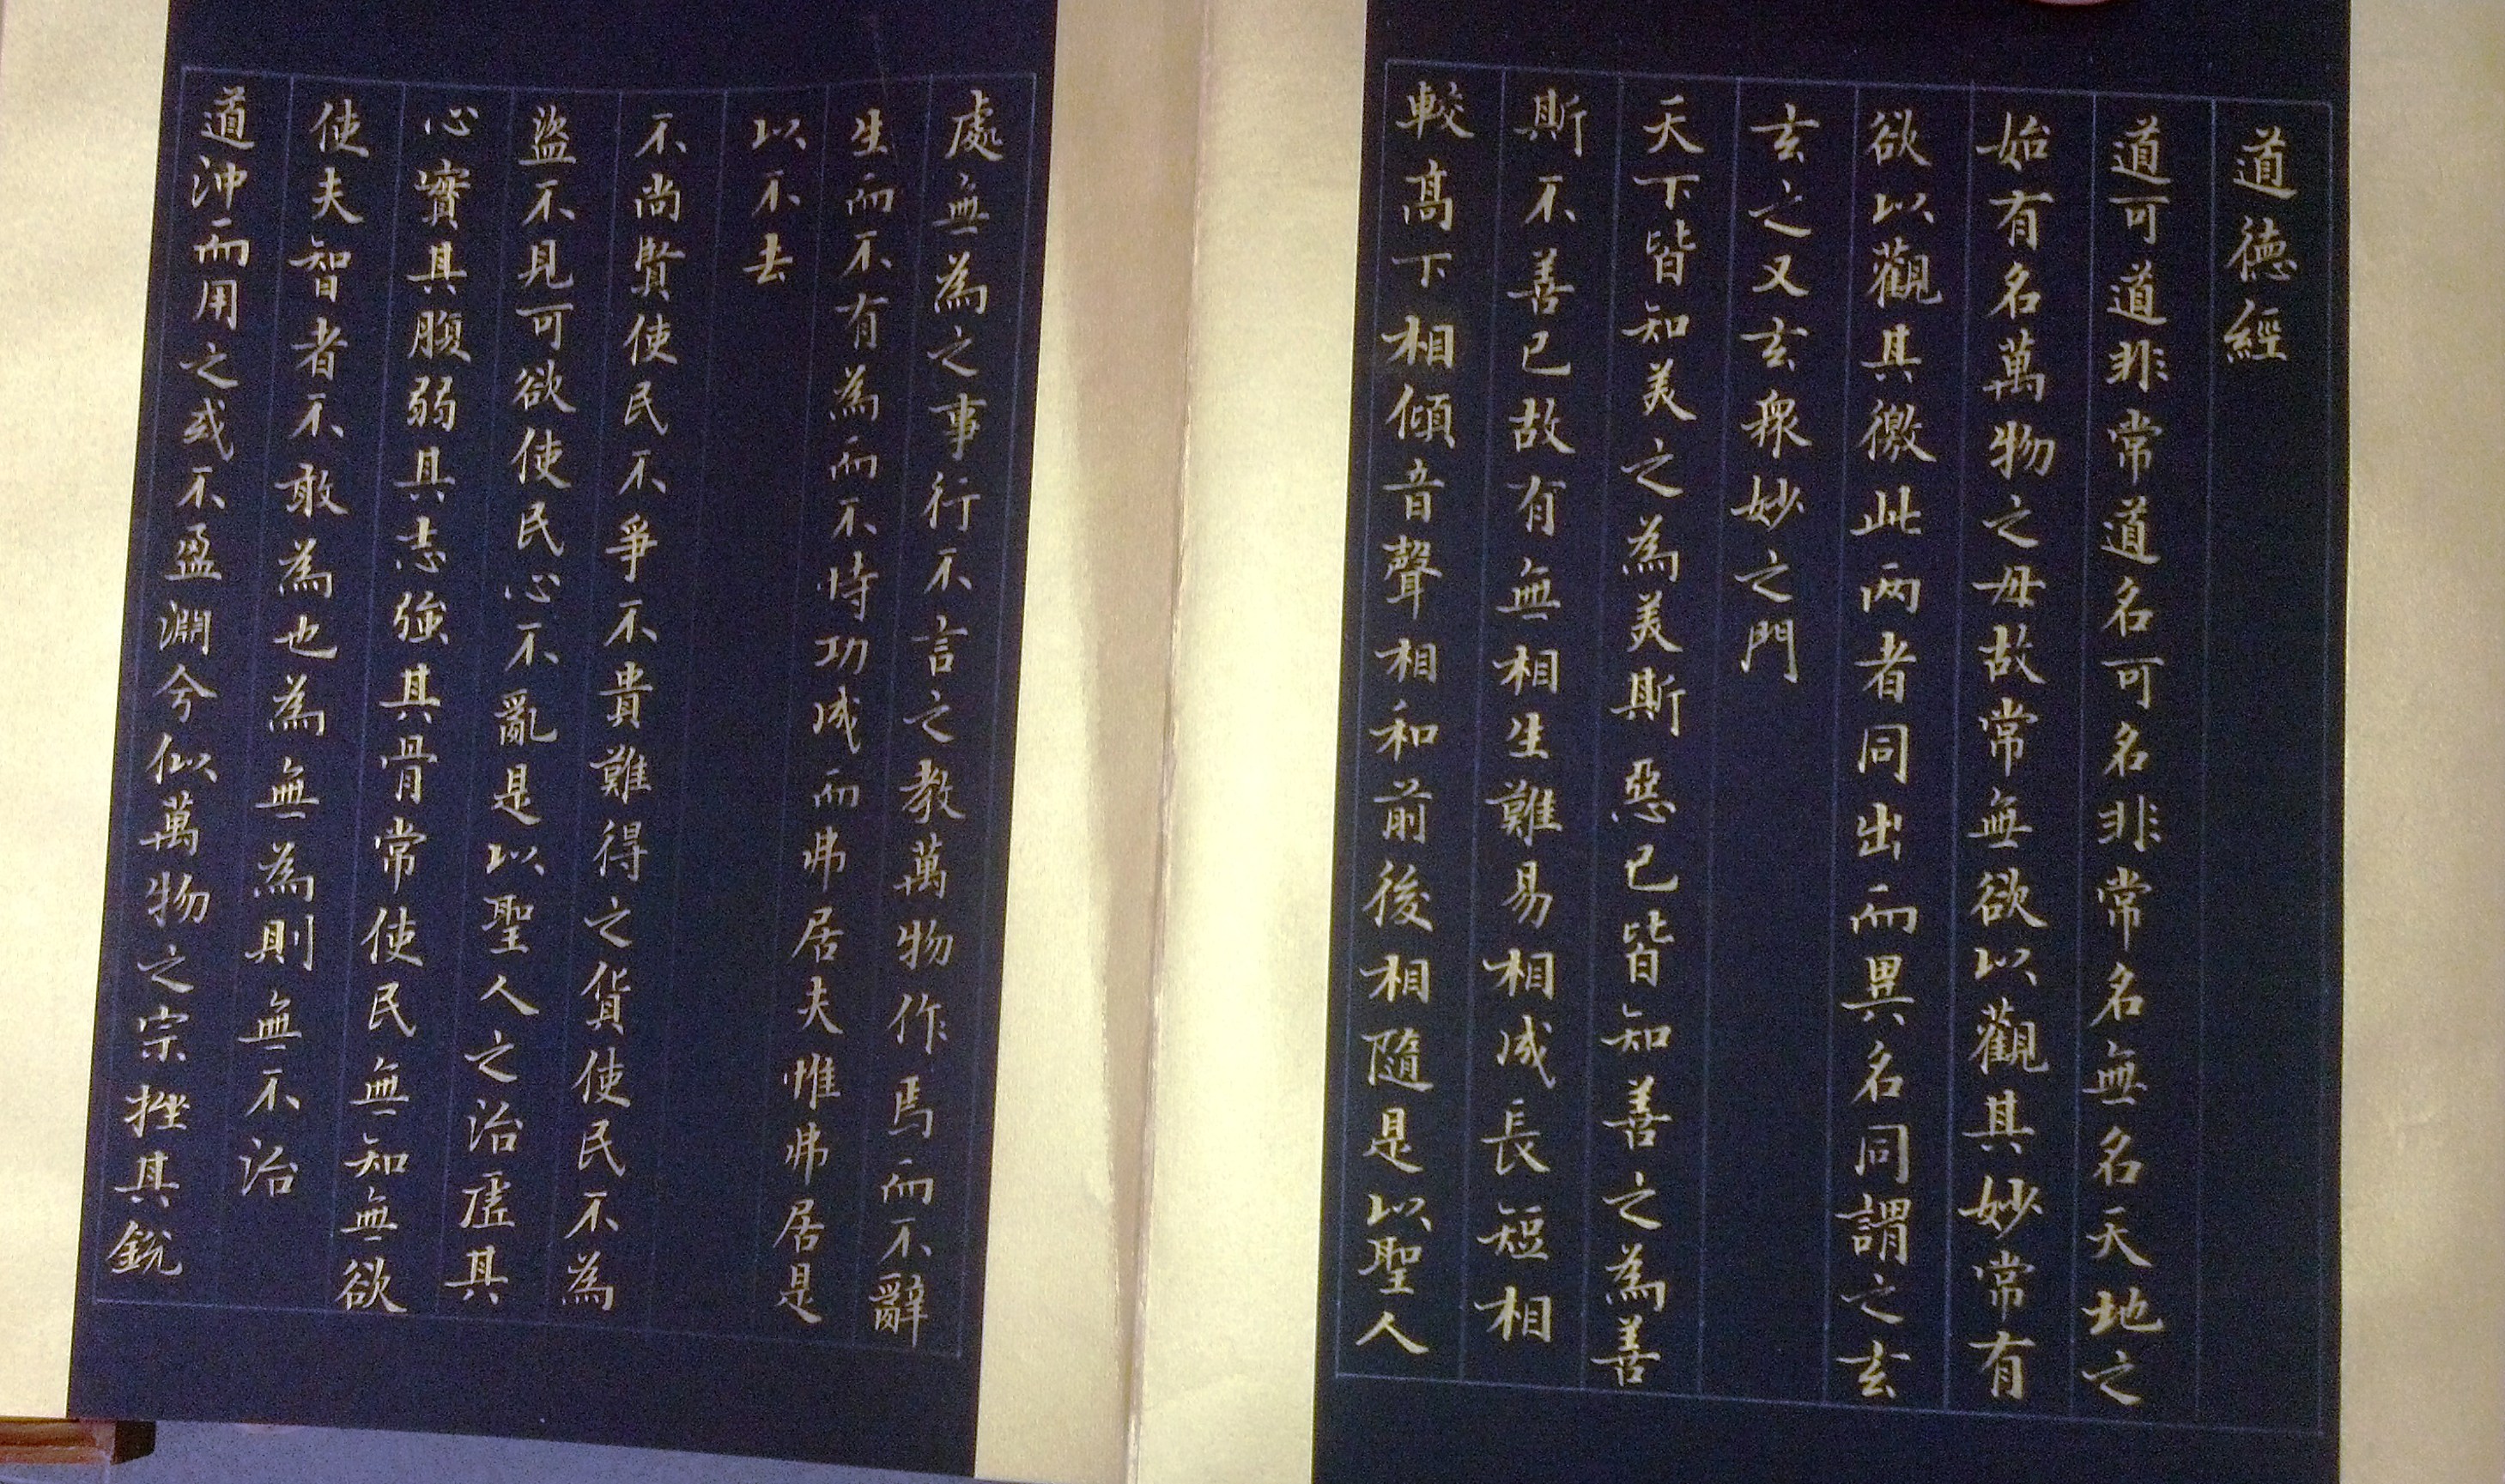 道德經
道可道非常道名可名非常名無名天地之
始有名萬物之母故常無欲以觀其妙常有
欲以觀其徼此两者同出而異名同謂之玄
玄之又玄衆妙之門
天下皆知美之為美斯惡已皆知善之為善
斯不善已故有無相生難易相成長短相
較高下相傾音聲相和前後相隨是以聖人
處無為之事行不言之教萬物作焉而不辭
生而不有為而不恃功成而弗居夫惟弗居是
以不去
不尚賢使民不爭不貴難得之貨使民不為
盜不見可欲使民心不亂是以聖人之治虛其
心實其腹弱其志強其骨常使民無知無欲
使夫智者不敢為也為無為則無不治
道沖而用之或不盈淵兮似萬物之宗挫其銳